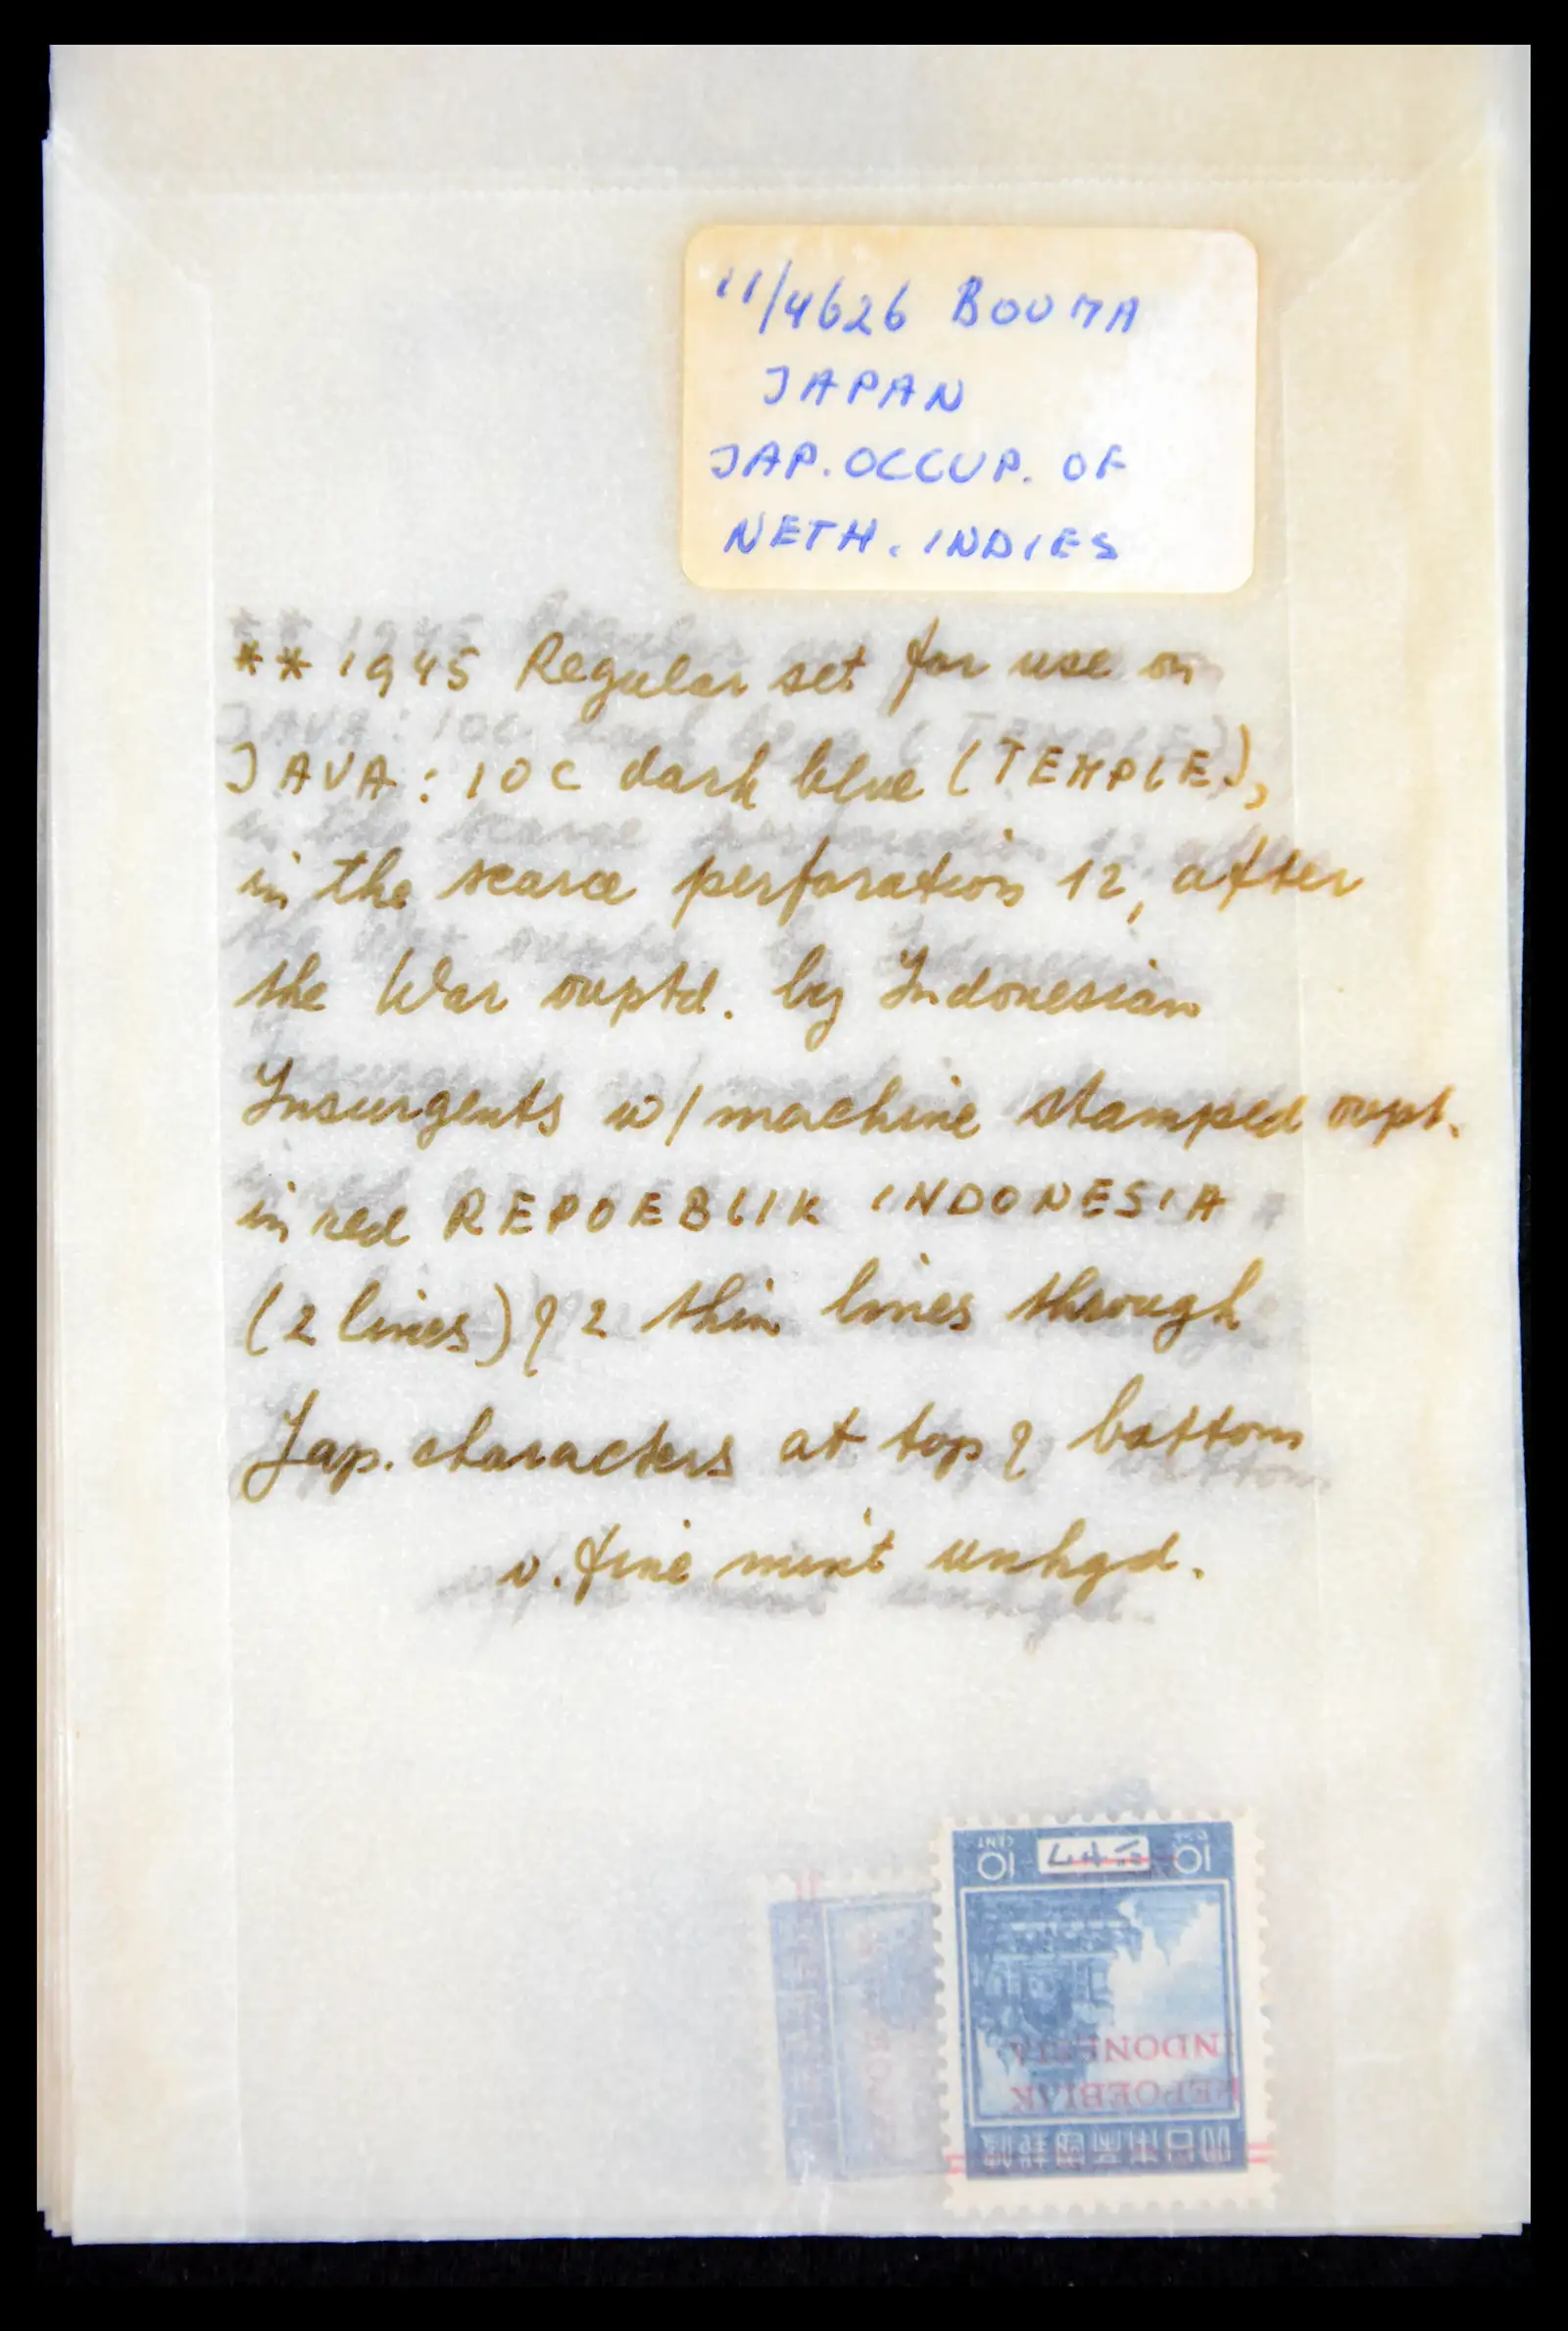 11/4626 BOUMA
JAPAN
JAP. OCCUP. OF
NETH. INDIES
** 1945 Regular set for use on
JAVA: 10c dark blue (TEMPLE),
in the scarce perforation 12, after
the War ovptd. by Indonesian
Insurgents w/ machine stamped ovpt.
in red REPOEBLIK INDONESIA
(2 lines) & 2 thin lines through
Jap. characters at top & bottom
v. fine mint unhgd.
10 CENT 10
INDONESIA
REPOEBLIK